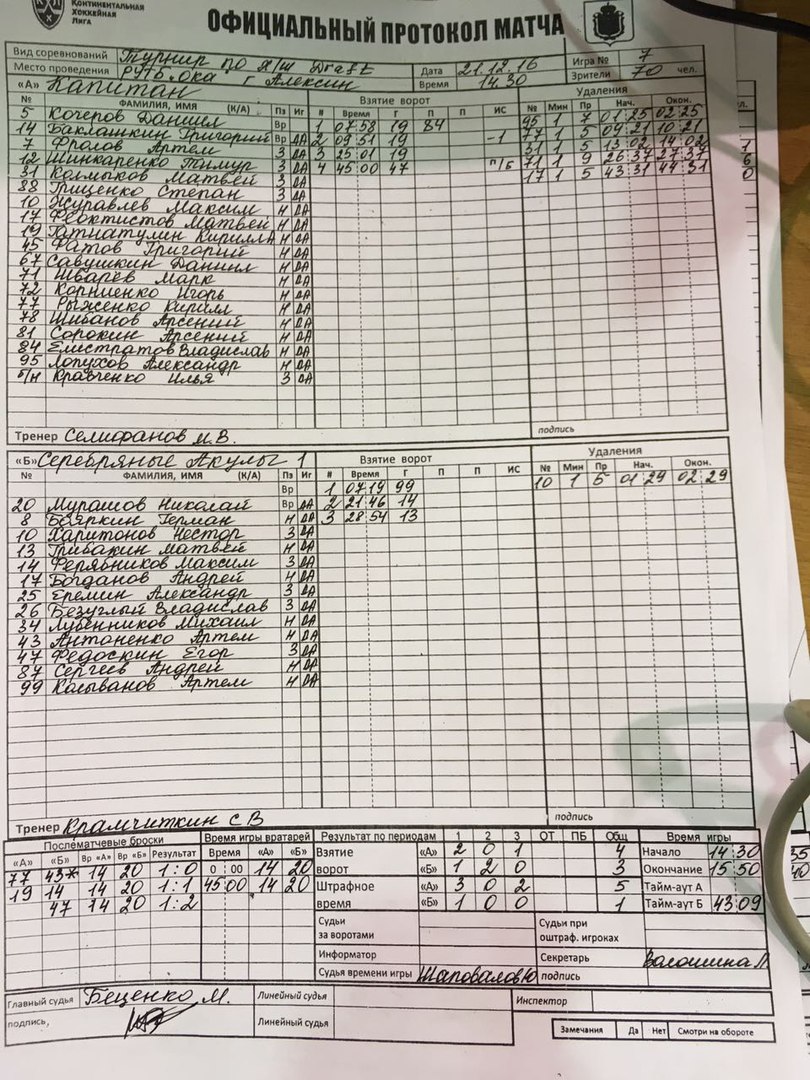 Континентальная
Хоккейная
Лига
ОФИЦИАЛЬНЫЙ ПРОТОКОЛ МАТЧА
Вид соревнований Турнир по х/ш Draft Игра № 7
Место проведения РУТБ "Ока" г Алексин Дата 21.12.16 Время 14.30 Зрители 70 чел.
«А» Капитан Взятие ворот Удаления
№ ФАМИЛИЯ, ИМЯ (К/А) Пз Иг # Время Г П П ИС № Мин Пр Нач. Окон.
5 Кочеров Даниил Вр 1 07:58 19 84 95 1 7 01:25 02:25
14 Баклашкин Григорий Вр ДА 2 09:51 19 -1 77 1 5 09:21 10:21
7 Фролов Артем З ДА 3 25:01 19 31 1 5 13:02 14:02
12 Шинкаренко Тимур З ДА 4 45:00 47 п/б 71 1 9 26:37 27:37
31 Колмыков Матвей З ДА 17 1 5 43:31 44:31
88 Грищенко Степан З ДА
10 Журавлев Максим Н ДА
17 Феоктистов Матвей Н ДА
19 Гатиатулин Кирилл А Н ДА
45 Фатов Григорий Н ДА
67 Савушкин Даниил Н ДА
71 Шварев Марк Н ДА
72 Корниенко Игорь Н ДА
77 Рыженко Кирилл Н ДА
78 Шибанов Арсений Н ДА
81 Сорокин Арсений Н ДА
84 Елистратов Владислав Н ДА
95 Лопухов Александр Н ДА
б/н Кравченко Илья З ДА
подпись
Тренер Селифанов М.В.
«Б» Серебряные Акулы 1 Взятие ворот Удаления
№ ФАМИЛИЯ, ИМЯ (К/А) Пз Иг # Время Г П П ИС № Мин Пр Нач. Окон.
Вр 1 07:19 99 10 1 5 01:29 02:29
20 Мурашов Николай Вр ДА 2 21:46 14
8 Бояркин Герман Н ДА 3 28:54 13
10 Харитонов Нестор З ДА
13 Грибакин Матвей Н ДА
14 Ферябников Максим З ДА
17 Богданов Андрей Н ДА
25 Еремин Александр З ДА
26 Безуглый Владислав З ДА
34 Лубенников Михаил Н ДА
43 Антоненко Артем Н ДА
47 Федоскин Егор З ДА
87 Сергеев Андрей Н ДА
99 Колыванов Артем Н ДА
Тренер Крамчиткин С В подпись
Послематчевые броски Время игры вратарей Результат по периодам 1 2 3 ОТ ПБ Общ Время игры
«А» «Б» Вр «А» Вр «Б» Результат Время «А» «Б» Взятие «А» 2 0 1 4 Начало 14 30
77 43* 14 20 1:0 0 :00 14 20 ворот «Б» 1 2 0 3 Окончание 15 50
19 14 14 20 1:1 45:00 14 20 Штрафное «А» 3 0 2 5 Тайм-аут А
47 14 20 1:2 время «Б» 1 0 0 1 Тайм-аут Б 43:09
Судьи за воротами Судьи при оштраф. игроках
Информатор Секретарь Валошина Л
Судья времени игры Шаповалов Ю подпись
Главный судья Беценко М. Линейный судья Инспектор
подпись, Линейный судья Замечания Да Нет Смотри на обороте